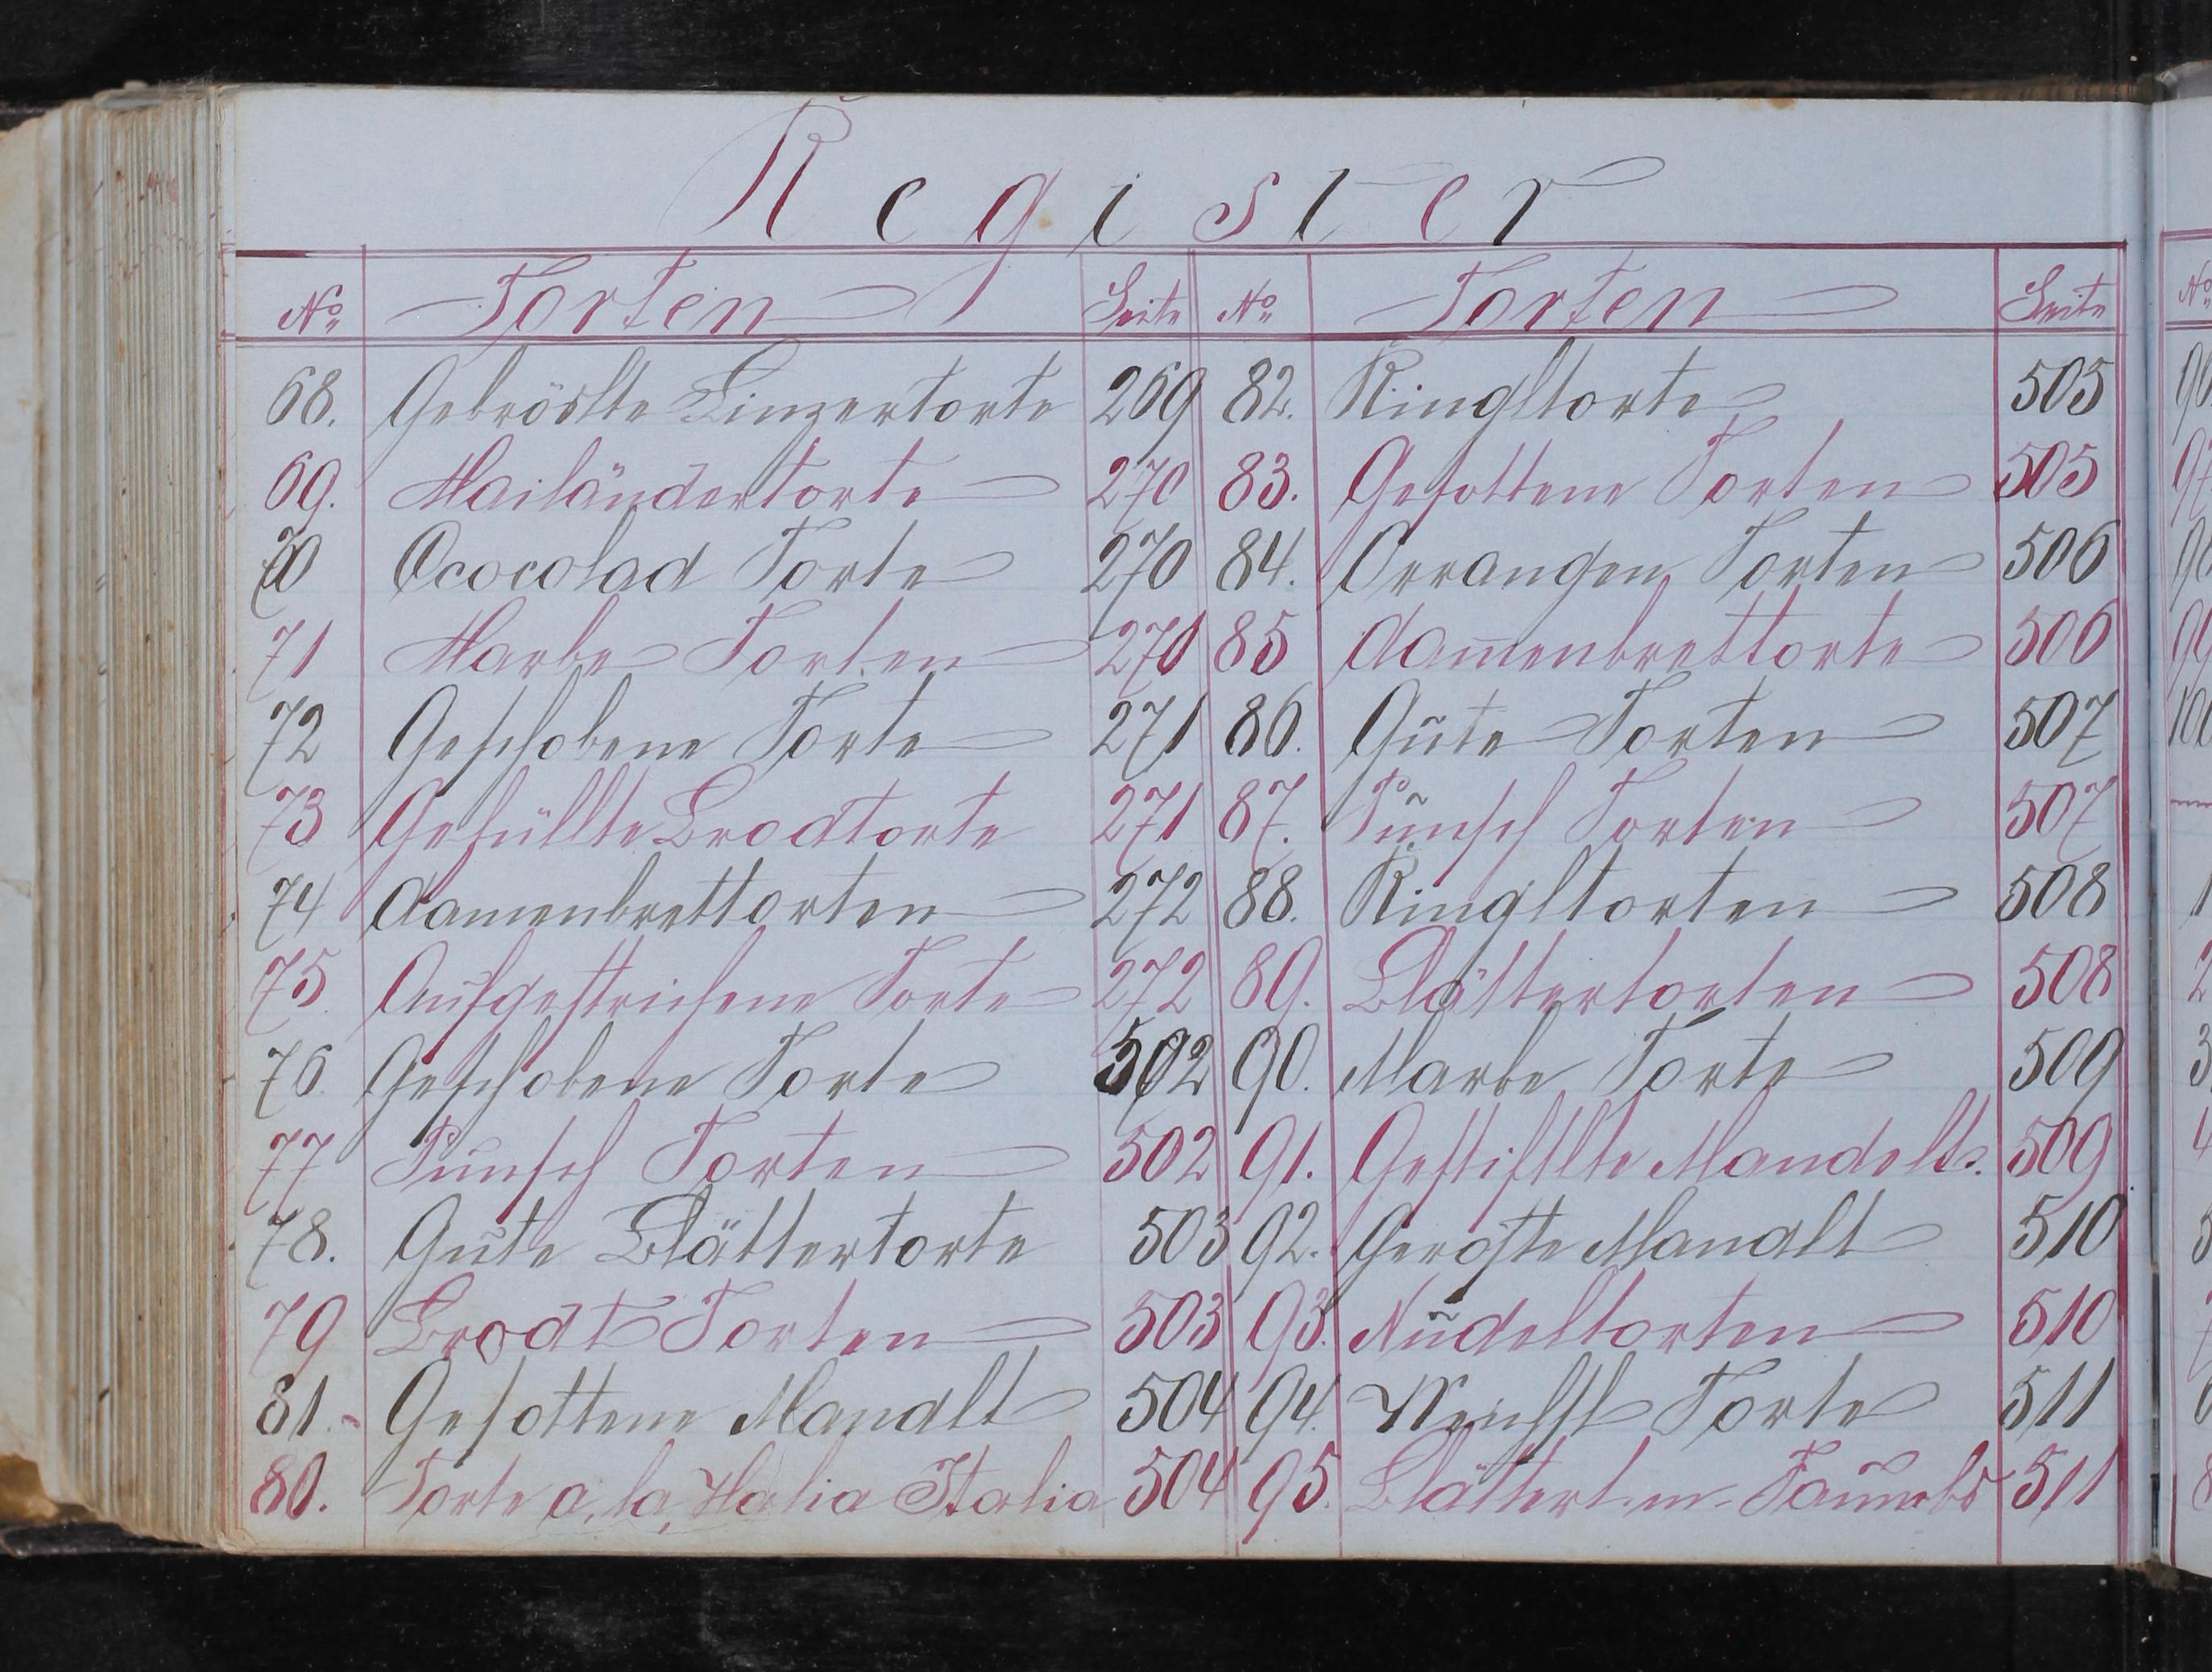 Register
No. Torten Seite No. Torten Seite
68. Gebröslte Linzertorte 269 82. Ringltorte 505
69. Mailändertorte 270 83. Gesottene Torten 505
70 Cococolad Torte 270 84. Orrangen Torten 506
71 Marbe Torten 270 85 Dam̅enbrettorte 506
72 Geschobene Torte 271 86. Gute Torten 507
73 Gefüllte Brodtorte 271 87. Punsch Torten 507
74 Damenbrettorten 272 88. Ringltorten 508
75. Aufgestrichene Torte 272 89. Blättertorten 508
76. Geschobene Torte 502 90. Marbe Torte 509
77 Punsch Torten 502 91. Gestiftlte Mandelt. 509
78. Gute Blättertorte 503 92. Geröste Mandlt 510
79 Brodt Torten 503 93. Nudeltorten 510
81. Gesottene Mandlt 504 94. Weichsl Torte 511
80. Torte a, la, Italia Italia 504 95. Blättert. m. 511